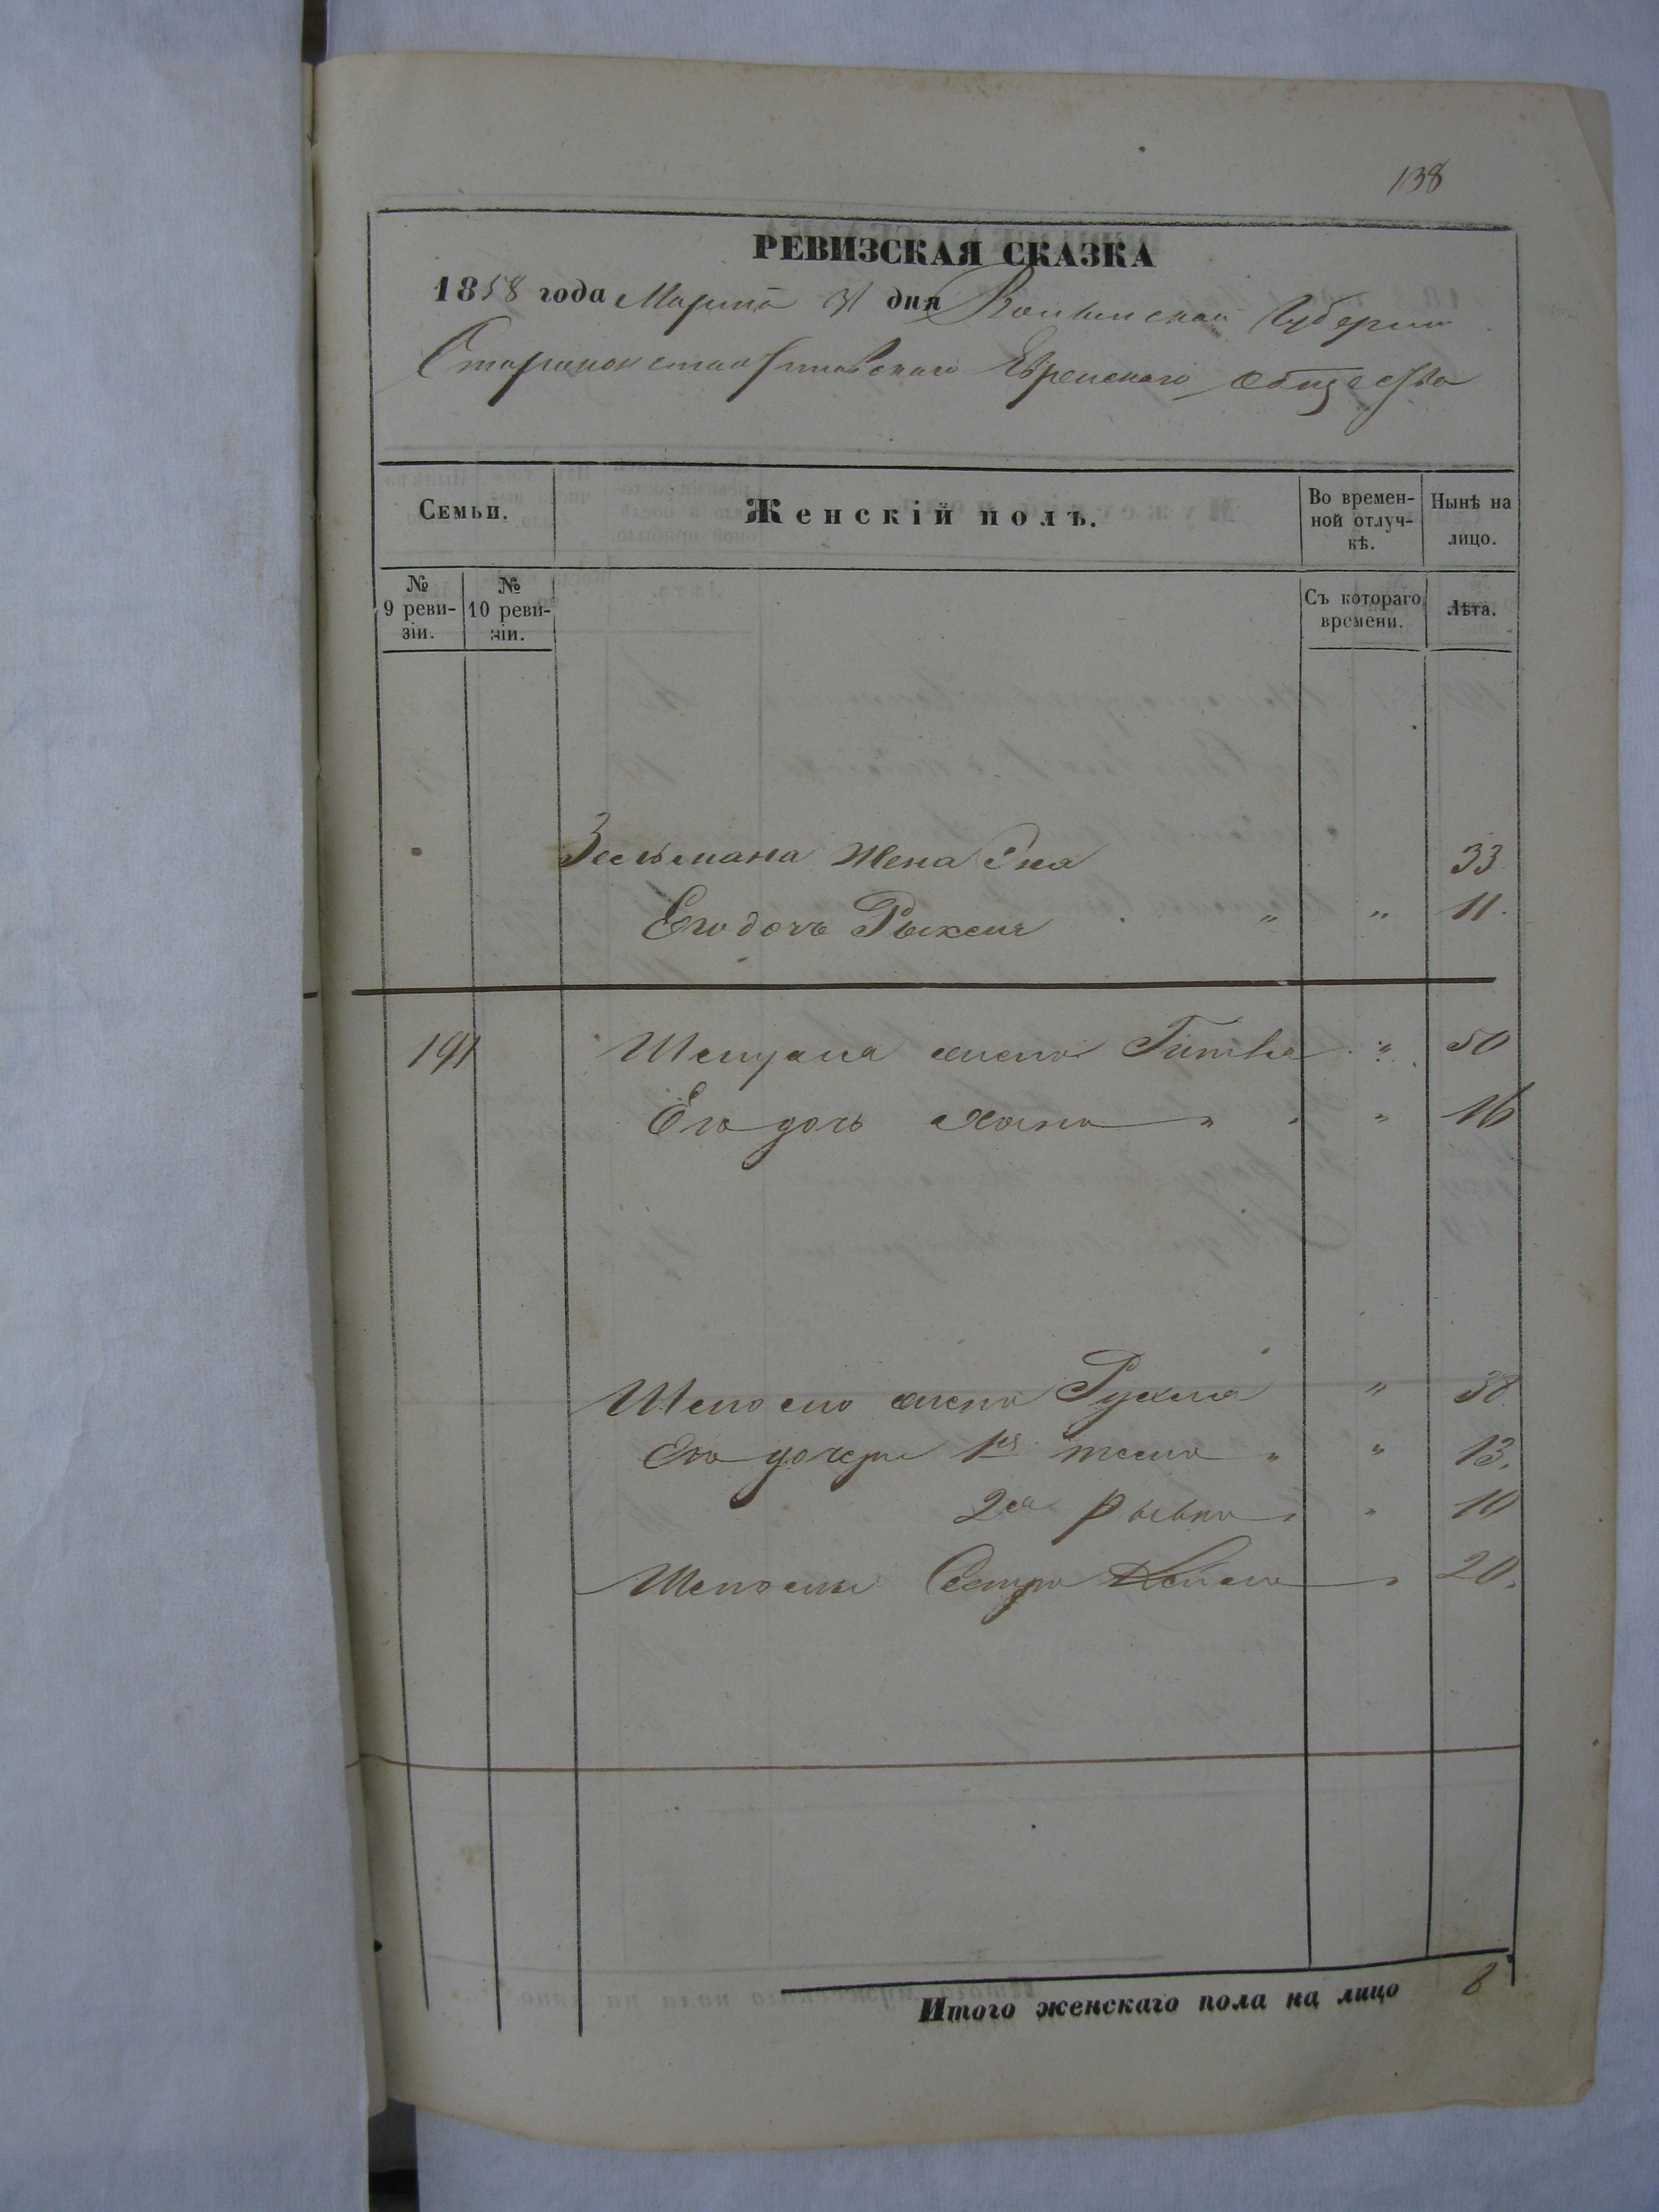 138
РЕВИЗСКАЯ СКАЗКА
1858 года Марта 31 дня Волынской Губернии
Староконстантиновскаго Еврейскаго общества
Семьи.
Женскій полъ.
Во времен-
ной отлуч-
кѣ.
Нынѣ на
лицо.
№
9 реви-
зіи.
№
10 реви-
зіи.
Съ котораго
времени.
Лѣта.
Зельмана Жена 33
Его дочь " " 11.
191 жена " 50
Его дочь Хана " " " 16
жена Рухля " 38
Его дочери 1я " " 13.
2я Рывка " " 10
Сестра " 20.
Итого женскаго пола на лицо 8